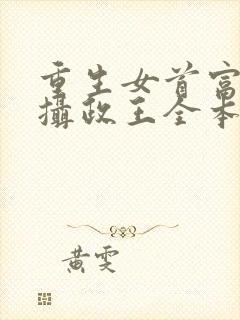 重生女首富
攝政王全本
黃雯